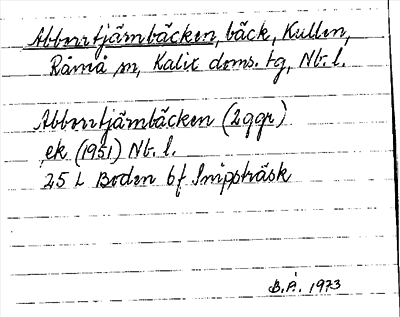 Abborrtjärnbäcken, bäck, Kullen,
Råneå sn, Kalix doms. tg, Nb. l.
Abborrtjärnbäcken (2 ggr)
ek (1951) Nb. l.
25 L Boden bf Snippträsk
B.Å. 1973